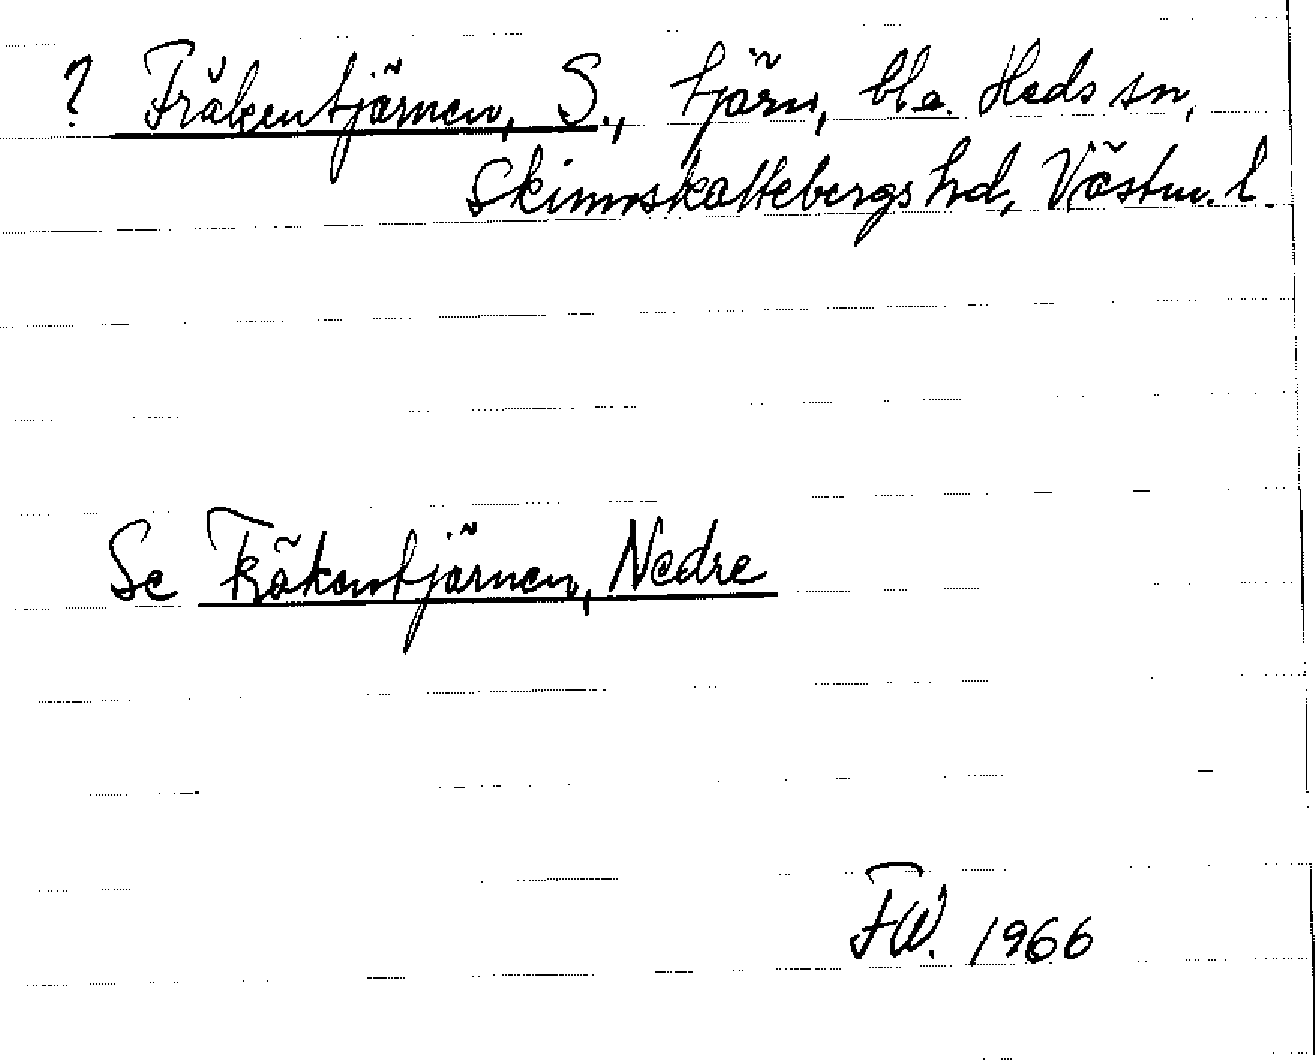 ? Fräkentjärnen, S., tjärn, bl.a. Heds sn,
Skinnskattebergs hd, Västm. l.
Se Fräkentjärnen, Nedre
FW. 1966